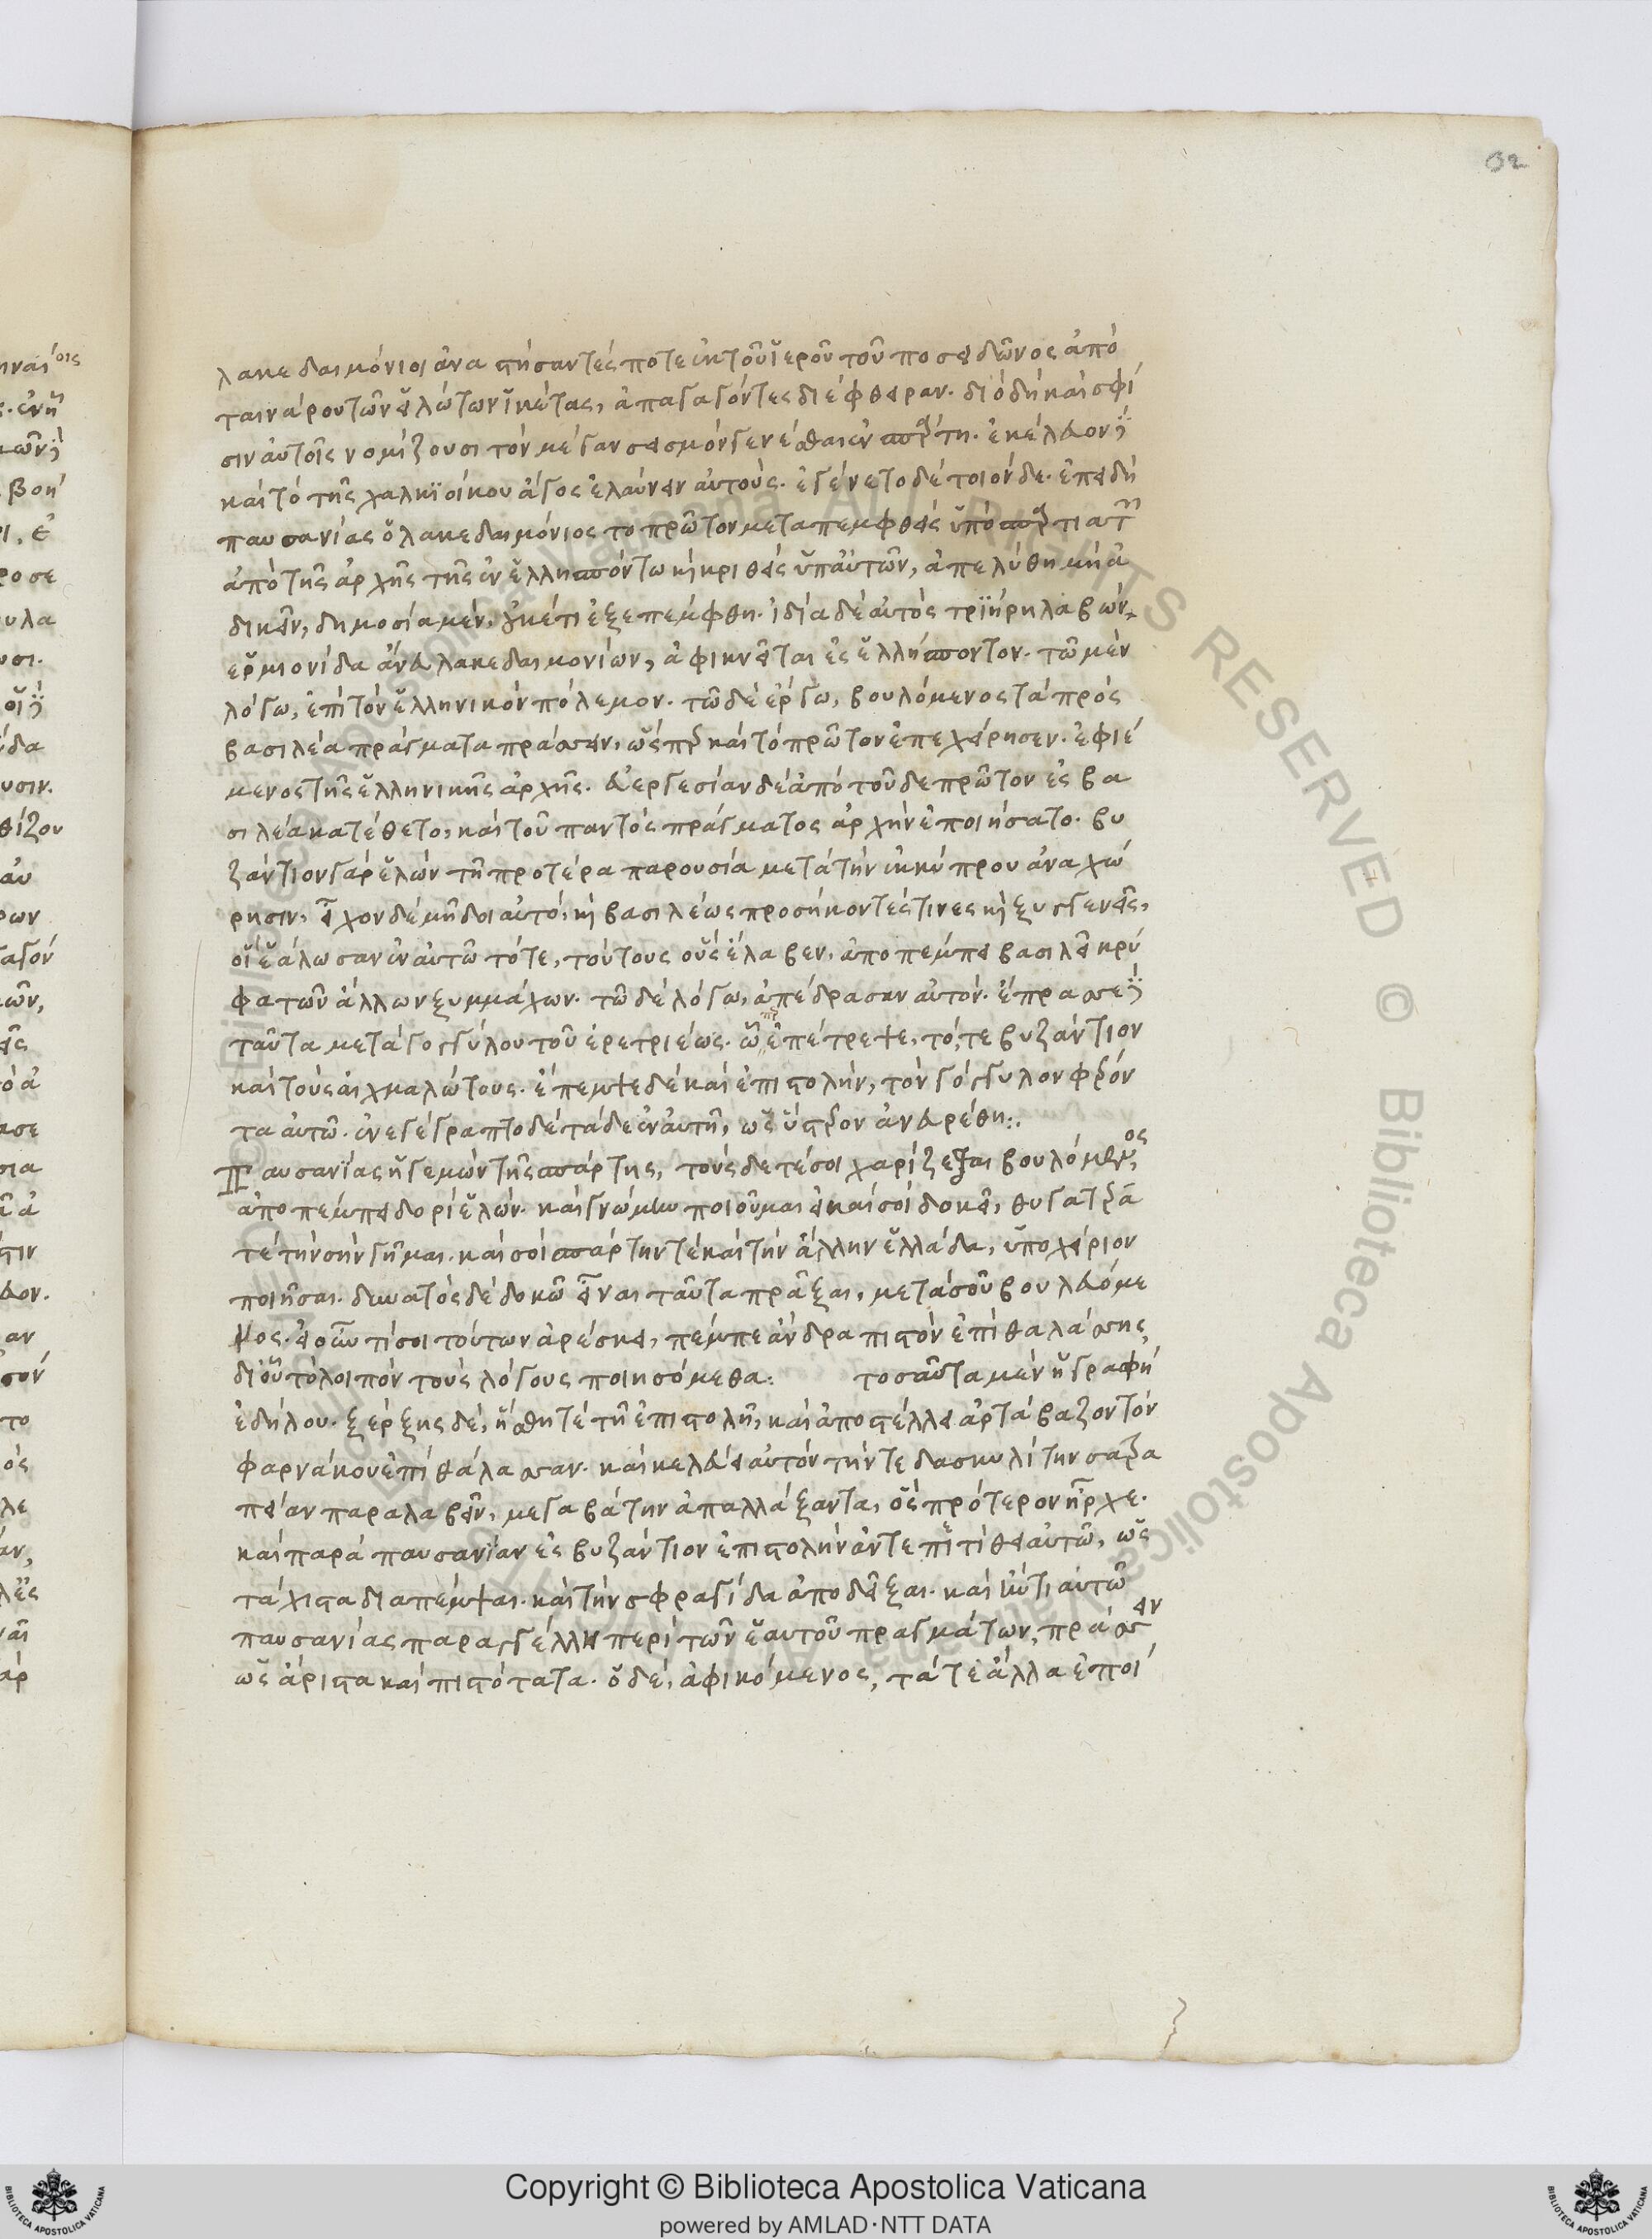 32
λακεδαιμόνιοι ἀναστήσαντές ποτε ἐκ τοῦ ἱεροῦ τοῦ ποσειδῶνος ἀπὸ
ταινάρου τῶν εἱλώτων ἱκέτας, ἀπαγαγόντες διέφθειραν. διὸ δὴ καὶ σφί
σιν αὐτοῖς νομίζουσι τὸν μέγαν σεισμὸν γενέσθαι ἐν σπάρτη. ἐκέλευον δὲ
καὶ τὸ τῆς χαλκιοίκου ἄγος ἐλαύνειν αὐτούς. ἐγένετο δὲ τοιόνδε. ἐπειδὴ
παυσανίας ὁ λακεδαιμόνιος τὸ πρῶτον μεταπεμφθεὶς ὑπὸ σπαρτιατῶν
ἀπὸ τῆς ἀρχῆς τῆς ἐν ἑλλησπόντω καὶ κριθεὶς ὑπ αὐτῶν, ἀπελύθη μὴ ἀ
δικεῖν, δημοσία μὲν, οὐκέτι ἐξεπέμφθη. ἰδία δὲ αὐτὸς τριήρη λαβὼν
ἑρμιονίδα ἄνευ λακεδαιμονίων, ἀφικνεῖται ἐς ἑλλήσποντον. τῶ μὲν
λόγω, ἐπὶ τὸν ἑλληνικὸν πόλεμον. τῶ δὲ ἔργω, βουλόμενος τὰ πρὸς
βασιλέα πράγματα πράσσειν, ὥσπερ καὶ τὸ πρῶτον ἐπεχείρησεν. ἐφιέ
μενος τῆς ἑλληνικῆς ἀρχῆς. εὐεργεσίαν δὲ ἀπὸ τοῦδε πρῶτον ἐς βα
σιλέα κατέθετο, καὶ τοῦ παντὸς πράγματος ἀρχὴν ἐποιήσατο. βυ
ζάντιον γὰρ ἑλὼν τῆ προτέρα παρουσία μετὰ τὴν ἐκ κύπρου ἀναχώ
ρησιν, εἶχον δὲ μῆδοι αὐτὸ, καὶ βασιλέως προσήκοντές τινες καὶ ξυγγενεῖς,
οἳ ἑάλωσαν ἐν αὐτῶ τότε, τούτους οὓς ἔλαβεν, ἀποπέμπει βασιλεῖ κρύ
φα τῶν ἄλλων ξυμμάχων. τῶ δὲ λόγω, ἀπέδρασαν αὐτόν. ἔπρασσε δὲ
ταῦτα μετὰ γογγύλου τοῦ ἐρετριέως. ὧ ἐπέτρεψε, τό, τε βυζάντιον
καὶ τοὺς αἰχμαλώτους. ἔπεμψε δὲ καὶ ἐπιστολὴν, τὸν γόγγυλον φέρον
τα αὐτῶ. ἐνεγέγραπτο δὲ τάδε ἐν αὐτῆ, ὡς ὕστερον ἀνευρέθη:.
Παυσανίας ἡγεμὼν τῆς σπάρτης, τούς δε τέ σοι χαρίζεσθαι βουλόμενος,
ἀποπέμπει δορὶ ἑλών. καὶ γνώμην ποιοῦμαι εἰ καὶ σοὶ δοκεῖ, θυγατέρα
τὲ τὴν σὴν γῆμαι. καὶ σοὶ σπάρτην τὲ καὶ τὴν ἄλλην ἑλλάδα, ὑποχείριον
ποιῆσαι. δυνατὸς δὲ δοκῶ εἶναι ταῦτα πρᾶξαι, μετὰ σοῦ βουλευόμε
νος. εἰ οὖν τί σοι τούτων ἀρέσκει, πέμπε ἄνδρα πιστὸν ἐπὶ θαλάσσης,
δι οὗ τὸ λοιπὸν τοὺς λόγους ποιησόμεθα: τοσαῦτα μὲν ἡ γραφὴ
ἐδήλου. ξέρξης δὲ, ἥσθη τὲ τῆ ἐπιστολῆ, καὶ ἀποστέλλει ἀρτάβαζον τὸν
φαρνάκου ἐπὶ θάλασσαν. καὶ κελεύει αὐτὸν τήν τε δασκυλῖτιν σατρα
πείαν παραλαβεῖν, μεγαβάτην ἀπαλλάξαντα, ὃς πρότερον ἦρχε.
καὶ παρὰ παυσανίαν ἐς βυζάντιον ἐπιστολὴν ἀντεπετίθει αὐτῶ, ὡς
τάχιστα διαπέμψαι. καὶ τὴν σφραγίδα ἀποδεῖξαι. καὶ ἤν τι αὐτῶ
παυσανίας παραγγέλλη περὶ τῶν ἑαυτοῦ πραγμάτων, πράσσειν
ὡς ἄριστα καὶ πιστότατα. ὁ δὲ, ἀφικόμενος, τά τε ἄλλα ἐποί
Copyright © Biblioteca Apostolica Vaticana
powered by AMLAD·NTT DATA